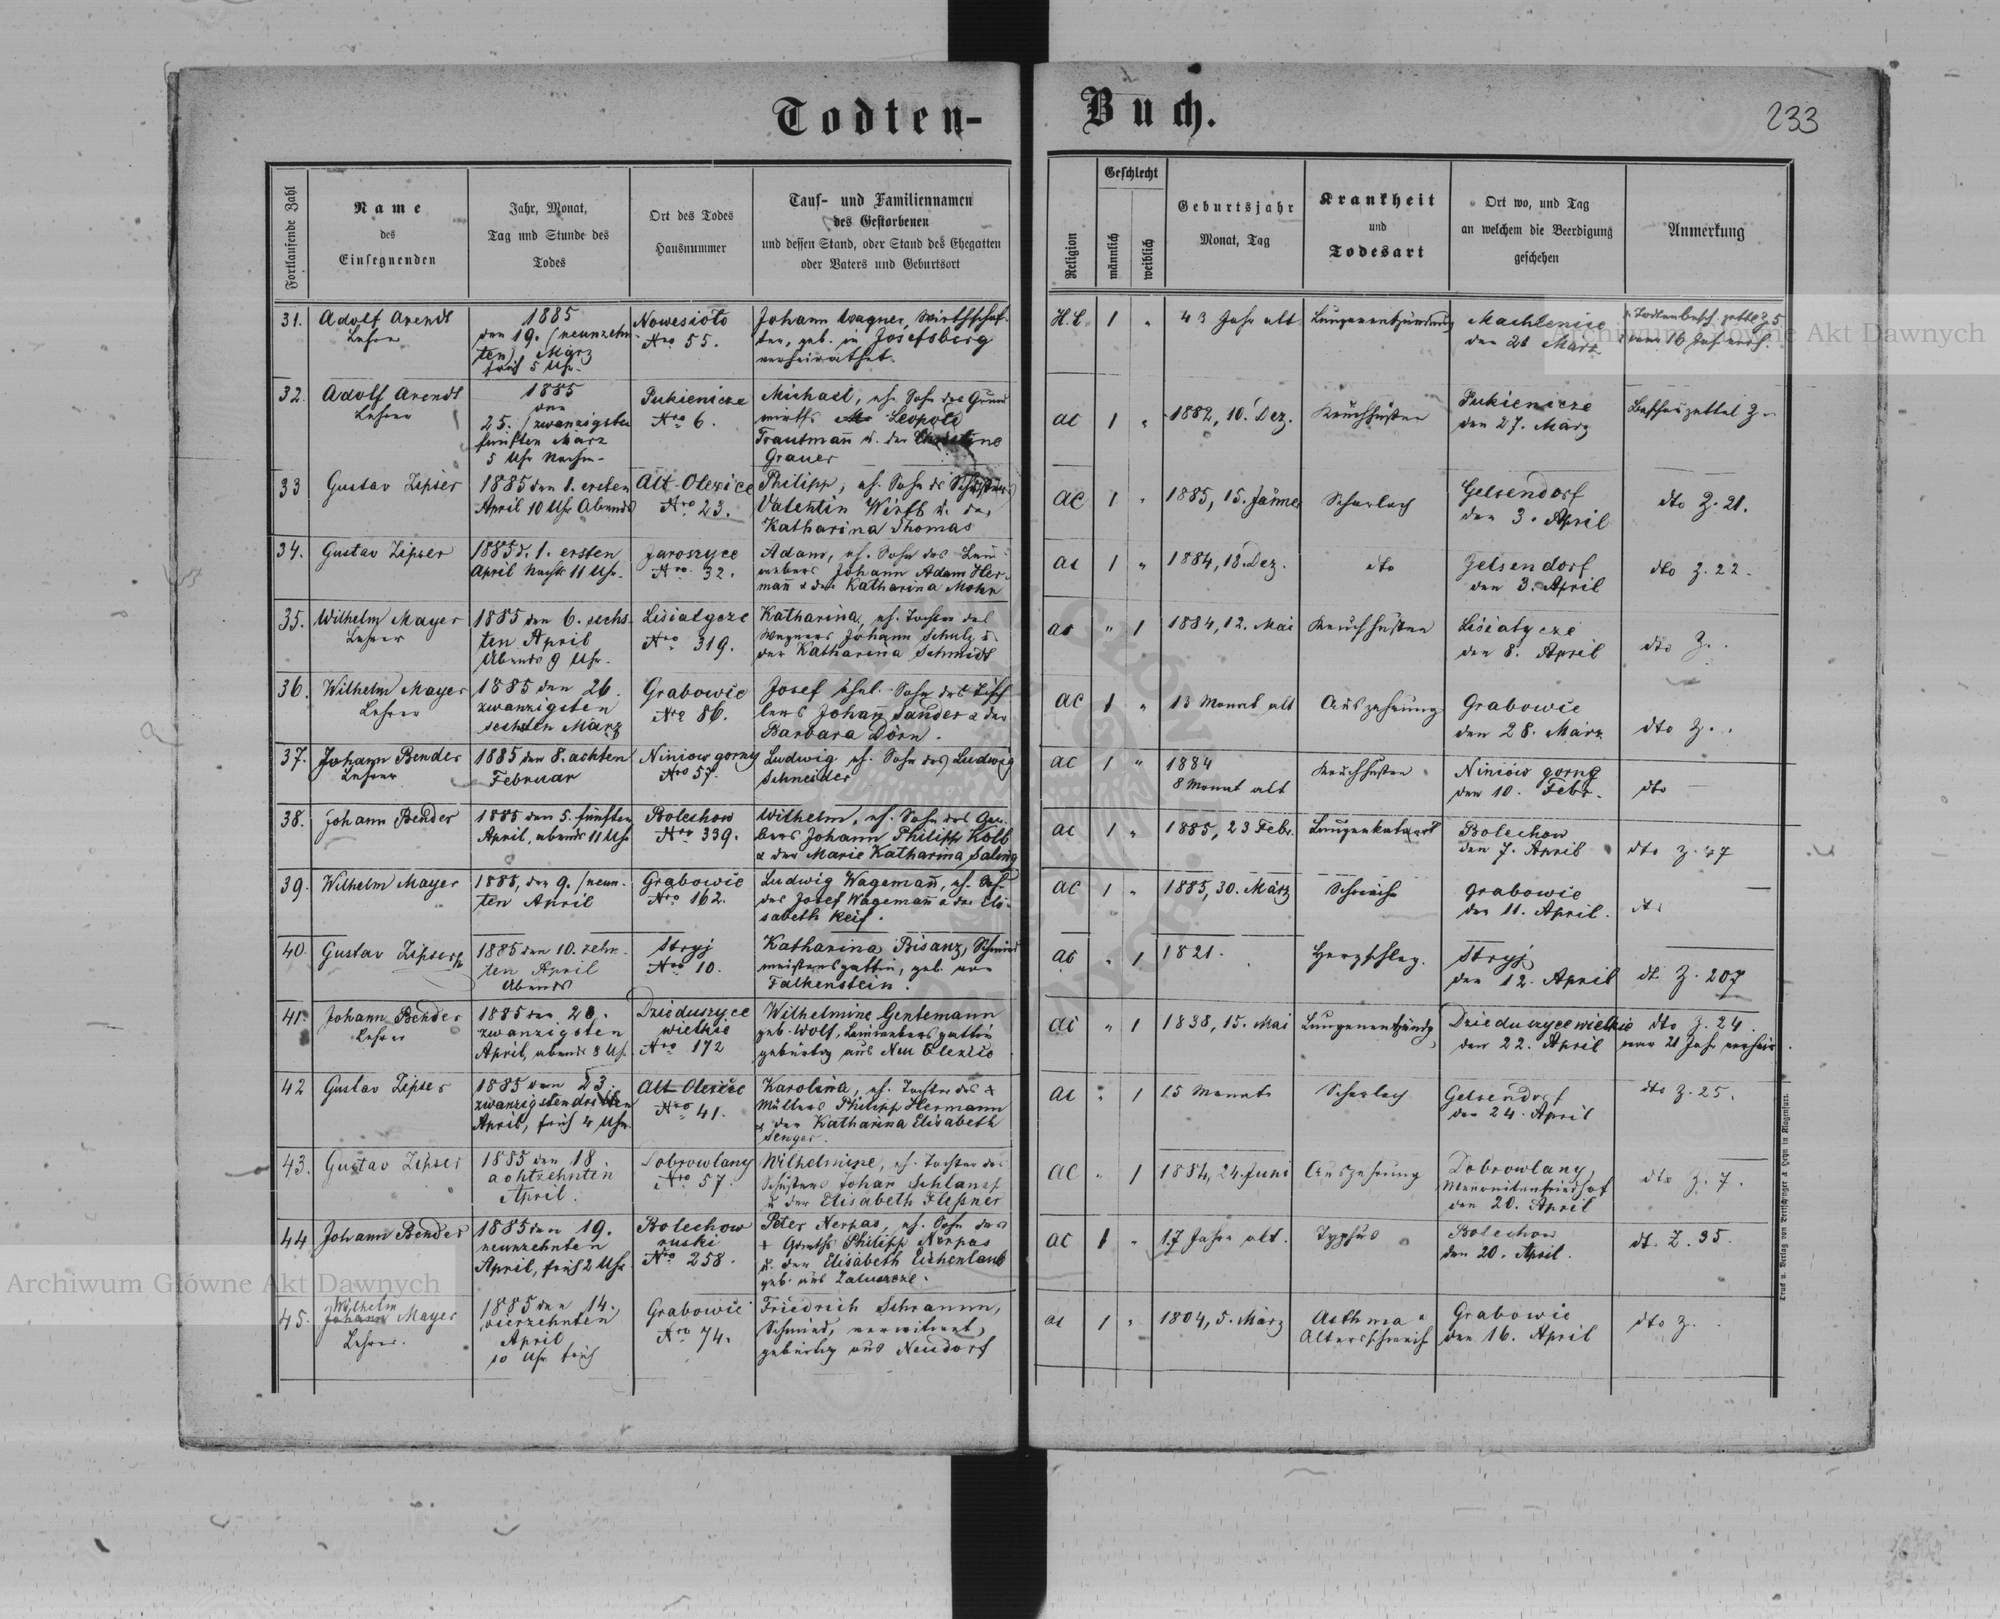 Todten-Buch.
233
Fortlaufende Zahl
Name
des
Einsegnenden
Jahr, Monat,
Tag und Stunde des
Todes
Ort des Todes
Hausnummer
Tauf- und Familiennamen
des Gestorbenen
und dessen Stand, oder Stand des Ehegatten
oder Vaters und Geburtsort
Religion
Geschlecht
männlich
weiblich
Geburtsjahr
Monat, Tag
Krankheit
und
Todesart
Ort wo, und Tag
an welchem die Beerdigung
geschehen
Anmerkung
31.
Adolf Arendt
Lehrer
1885
den 19. (neunzehn
ten) März
früh 5 Uhr
Nowesioło
Nro 55.
Johann Wagner, Wirthschaf-
ter, geb. in Josefsberg
verheirathet.
H. C.
1
"
43 Jahr alt
Lungenentzündung
Machlenice
den 21 März
32.
Adolf Arendt
Lehrer
1885
den
25. (zwanzigsten
fünften März
5 Uhr Nachm.
Pukienicze
Nro 6.
Michael, eh. Sohn des Grund
wirths Leopold
Trautmann u. der Christine
Grauer
ac
1
"
1882, 10. Dez.
Keuchhusten
Pukienicze
den 27. März
33
Gustav Zipser
1885 den 1. ersten
April 10 Uhr Abends
Alt-Olexice
Nro 23.
Philipp, eh. Sohn des Schusters
Valentin Wirth u. der
Katharina Thomas
ac
1
"
1885, 15. Jänner
Scharlach
Gelsendorf
den 3. April
dto Z. 21.
34.
Gustav Zipser
1885 d. 1. ersten
April Nachts 11 Uhr.
Jaroszyce
Nro 32.
Adam, eh. Sohn des Land-
webers Johann Adam Her-
mann & der Katharina Mohr
ac
1
"
1884, 18. Dez.
dto
Gelsendorf
den 3. April
dto Z. 22.
35.
Wilhelm Mayer
Lehrer
1885 den 6. sechs-
ten April
Abends 9 Uhr.
Lisiatycze
Nro 319.
Katharina, eh. Tochter des
Wagners Johann Schulz u.
der Katharina Schmidt
ac
"
1
1884, 12. Mai
Keuchhusten
Lisiatycze
den 8. April
dto Z.
36.
Wilhelm Mayer
Lehrer
1885 den 26.
zwanzigsten
sechsten März
Grabowie
Nro 86.
Josef ehel. Sohn des Tisch
lers Johann Sander & der
Barbara Dörn.
ac
1
"
13 Monat alt
Auszehrung
Grabowie
den 28. März
dto Z.
37.
Johann Bender
Lehrer
1885 den 8. achten
Februar
Niniow gorny
Nro 57.
Ludwig eh. Sohn des Ludwig
Schneider
ac
1
"
1884
8 Monat alt
Keuchhusten
Niniów gorny
den 10. Febr.
dto
38.
Johann Bender
1885 den 5. fünften
April, abends 11 Uhr
Bolechow
Nro 339.
Wilhelm, eh. Sohn des Ger-
bers Johann Philipp Kolb
& der Marie Katharina Saling
ac
1
"
1885, 23 Febr.
Lungenkatarrh
Bolechow
den 7. April
dto Z. 27
39.
Wilhelm Mayer
1885, den 9. (neun-
ten April
Grabowie
Nro 162.
Ludwig Wagemann, eh. Sohn
des Josef Wagemann & der Eli-
sabeth Reif.
ac
1
"
1885, 30. März
Schwäche
Grabowie
den 11. April.
dto
40.
Gustav Zipser
1885 den 10. zehn-
ten April
Abends
Stryj
Nro 10.
Katharina Bisanz, Schmied
meistersgattin, geb. von
Falkenstein.
ac
"
1
1821.
Herzschlag.
Stryj
den 12. April
dto Z. 207
41.
Johann Bender
Lehrer
1885 den 20.
zwanzigsten
April, abends 8 Uhr
Dzieduszyce
wielkie
Nro 172
Wilhelmine Gentemann
geb. Wolf, Leinwebersgattin
gebürtig aus Neu Olexice
ac
"
1
1838, 15. Mai
Lungenentzündg
Dzieduszyce wielkie
den 22. April
dto Z. 24.
war 21 Jahr verheir.
42
Gustav Zipser
1885 den 23.
zwanzigsten dritten
April, früh 4 Uhr.
Alt Olexice
Nro 41.
Karolina, eh. Tochter des
Müllers Philipp Hermann
& der Katharina Elisabeth
Senger.
ac
"
1
15 Monate
Scharlach
Gelsendorf
den 24. April
dto Z. 25.
43.
Gustav Zipser
1885 den 18.
achtzehnten
April.
Dobrowlany
Nro 57.
Wilhelmine, eh. Tochter des
Schusters Johan Schlamp
u. der Elisabeth Flessner
ac
"
1
1884, 24. Juni
Auszehrung
Dobrowlany,
Mennonitenfriedhof
den 20. April
dto Z. 7.
44
Johann Bender
1885 den 19.
neunzehnten
April, früh 2 Uhr
Bolechow
ruski
Nro 258.
Peter Nerpas, eh. Sohn des
Philipp Nerpas
u. der Elisabeth Eichenlaub
geb. aus
ac
1
"
17 Jahre alt.
Typhus
Bolechow
den 20. April.
dt. Z. 35.
45.
Wilhelm
Johann Mayer
Lehrer.
1885 den 14.
vierzehnten
April
10 Uhr früh
Grabowie
Nro 74.
Friedrich Schramm,
Schmied, verwitwet,
gebürtig aus Neudorf
ac
1
"
1804, 5. März
Asthma &
Altersschwäche
Grabowie
den 16. April
dto Z.
Druck u. Verlag von Bertschinger & Heyn in Klagenfurt.
Archiwum Główne Akt Dawnych
Archiwum Główne Akt Dawnych